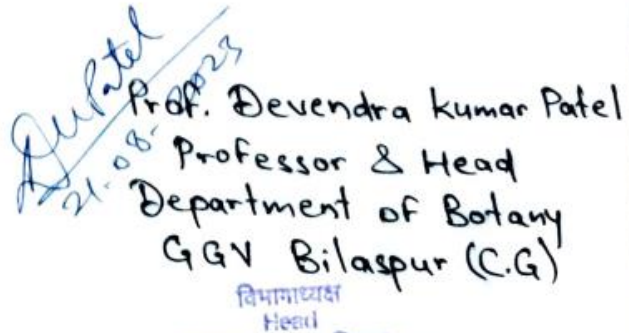 DKPatel
21-08-2023
Prof. Devendra kumar Patel
Professor & Head
Department of Botany
GGV Bilaspur (C.G)
विभागाध्यक्ष
Head